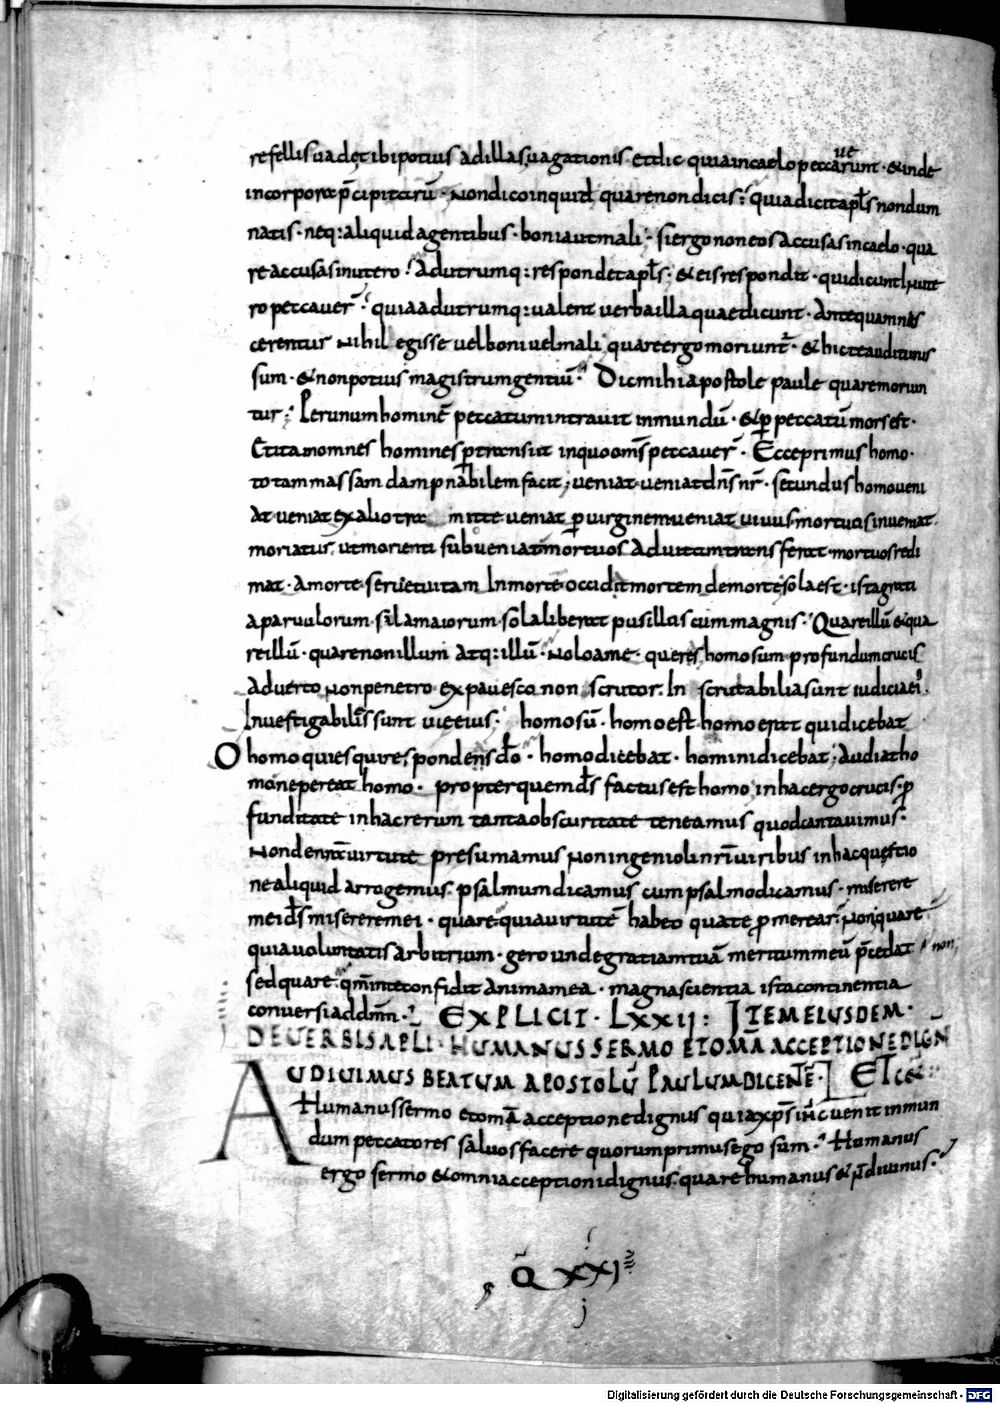 refellis uadet ibi potius ad illas uagationis. et dic quia in caelo peccauerunt. & inde
in corpora p̄cipitatrū. Non dico inquid quare non dicis; quia dicit apl̄s nondum
natis. neq: aliquid agentibus. boni aut mali. si ergo non eos accusas in caelo. qua
re accusas in utero. Ad utrumq: respondet apl̄s. & eis respondit. qui dicunt In ute
ro peccauer̄. quia ad utrumq: ualent uerba illa quae dicunt. Antequam nas
cerentur Nihil egisse uel boni uel mali quare ergo moriunt̄. & hic te auditurus
sum. & non potius magistrum gentiū. Dic mihi apostole paule quare moriun
tur; Per unum hominē peccatum intrauit in mundū. & ꝑ peccatū mors est.
Et ita in omnes homines ꝑtransiit in quo om̄s peccauer̄. Ecce primus homo.
totam massam dampnabilem facit; ueniat ueniat dn̄s nr̄. secundus homo ueni
At ueniat ex alio tra mitte ueniat ꝑ uirginem ueniat uiuus mortuos inueniat.
moriatur, ut morienti subueniat mortuos ad uitam transferat. mortuos redi
mat. A morte seruet uitam In morte occidit mortem de morte sola est. ista grati
a paruulorum. sola maiorum. sola liberat pusillus cum magnis. Quare illū & qua
re illū. quare non illum Atq: illū. Nolo a me. queres homo sum profundum crucis
Aduerto Non penetro. expauesco non scrutor. In scrutabilia sunt iudicia ei'.
Inuestigabiles sunt uie eius. homo sū. homo est homo erat qui dicebat
O homo qui es qui respondens dō. homo dicebat. homini dicebat; Audiat ho
mo ne pereat homo. propter quem ds̄ factus est homo in hac ergo crucis. ꝓ
funditate in hac rerum tanta obscuritate teneamus quod cantauimus.
Non de nr̄a uirtute presumamus Non ingenio In nr̄i uiribus in hac questio
ne aliquid arrogemus. psalmum dicamus cum psalmo dicamus. miserere
mei ds̄ miserere mei. quare quia uirtutē habeo qua te ꝓmerear. Non quare
quia uoluntatis arbitrium. gero unde gratiam tuā meritum meū p̄cedat non
sed quare. qm̄ in te confidit anima mea. magna scientia ista continentia
conuersi ad dm̄n. EXPLICIT. LXXII: ITEM EIUSDEM.
DE UERBIS APLI. HUMANUS SERMO ET OMĀ ACCEPTIONE DIGN
AUDIUIMUS BEATUM APOSTOLŪ PAULUM DICENTĒ. ET CET
Humanus sermo et omā acceptione dignus quia xp̄s ih̄c uenit in mun
dum peccatores saluos facere quorum primus ego sum. Humanus
ergo sermo & omni acceptioni dignus. quare humanus & n̄ diuinus.
Q̄ XXI